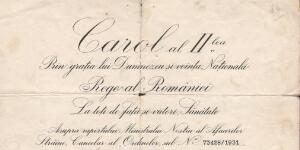 Carol al II lea
Prin grația lui Dumnezeu și voința Națională
Rege al României
La toți de față și viitori Sănătate
Asupra raportului Ministrului Nostru al Afacerilor
Străine, Cancelar al Ordinelor sub No. 73428/1931